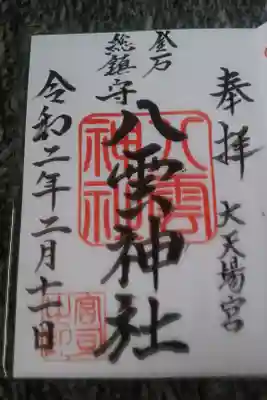 奉拝
大天場宮
登石
総鎮守
八雲神社
八雲
神社
宮司
之印
令和二年二月十一日